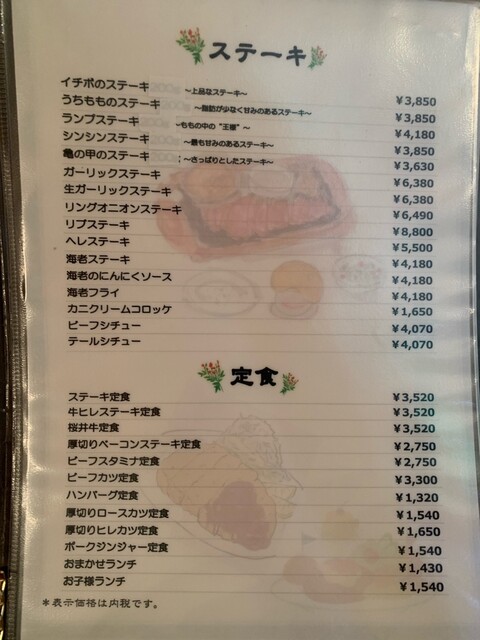 ステーキ
イチボのステーキ ～上品なステーキ～ ¥3,850
うちもものステーキ ～脂肪が少なく甘みのあるステーキ～ ¥3,850
ランプステーキ ～ももの中の"王様"～ ¥4,180
シンシンステーキ ～最も甘みのあるステーキ～ ¥3,850
亀の甲のステーキ ；～さっぱりとしたステーキ～ ¥3,630
ガーリックステーキ ¥6,380
生ガーリックステーキ ¥6,380
リングオニオンステーキ ¥6,490
リブステーキ ¥8,800
ヘレステーキ ¥5,500
海老ステーキ ¥4,180
海老のにんにくソース ¥4,180
海老フライ ¥4,180
カニクリームコロッケ ¥1,650
ビーフシチュー ¥4,070
テールシチュー ¥4,070
定食
ステーキ定食 ¥3,520
牛ヒレステーキ定食 ¥3,520
桜井牛定食 ¥3,520
厚切りベーコンステーキ定食 ¥2,750
ビーフスタミナ定食 ¥2,750
ビーフカツ定食 ¥3,300
ハンバーグ定食 ¥1,320
厚切りロースカツ定食 ¥1,540
厚切りヒレカツ定食 ¥1,650
ポークジンジャー定食 ¥1,540
おまかせランチ ¥1,430
お子様ランチ ¥1,540
＊表示価格は内税です。